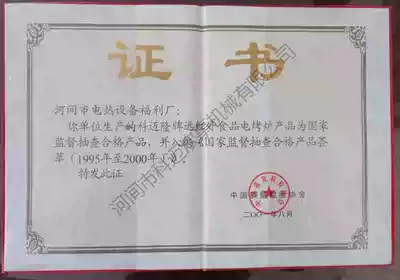 证书
河间市电热设备福利厂：
你单位生产的科迈隆牌远红外食品电烤炉产品为国家
监督抽查合格产品，并入编《国家监督抽查合格产品荟
萃（1995年至2000年）》。
特发此证
二〇〇一年八月
河间市科迈隆机械有限公司